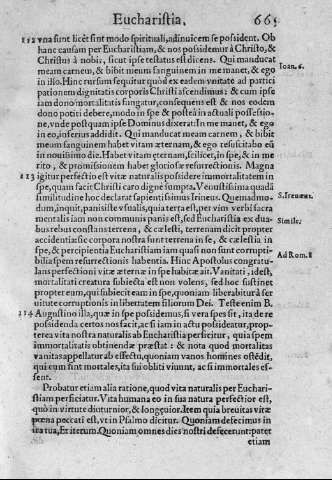 Eucharistia. 665
112 vna sunt licèt sint modo spirituali, adinuicem se possident. Ob
hanc causam per Eucharistiam, & nos possidemur à Christo, &
Christus à nobis, sicut ipse testatus est dicens. Qui manducat
meam carnem, & bibit meum sanguinem in me manet, & ego Ioan. 6.
in illo. Hinc rursum sequitur quòd ex eadem vnitate ad partici
pationem dignitatis corporis Christi ascendimus: & cum ipse
iam dono mortalitatis fungatur, consequens est & nos eodem
dono potiri debere, modo in spe & postea in actuali possessio-
ne, vnde postquam ipse Dominus dixerat: In me manet, & ego
in eo, inferius addidit. Qui manducat meam carnem, & bibit
meum sanguinem habet vitam æternam, & ego resuscitabo eũ
in nouissimo die. Habet vitam æternam, scilicet, in spe, & in me
rito, & promissionem habet gloriosæ resurrectionis. Magna
113 igitur perfectio est vitæ naturalis possidere immortalitatem in
spe, quam facit Christi caro dignè sumpta. Venustissima quadã
similitudine hoc declarat sapientissimus Irineus. Quemadmo- S. Ireneus.
dum, inquit, panis iste vsualis, quia terra est, per vim verbi sacra
mentalis iam non communis panis est, sed Eucharistia ex dua-
bus rebus constans terrena, & cælesti, terrenam dicit propter Simile.
accidentia: sic corpora nostra sunt terrena in se, & cælestia in
spe, & percipientia Eucharistiam iam quasi non sunt corrupti-
bilia spem resurrectionis habentia. Hinc Apostolus congratu- Ad Rom. 8
lans perfectioni vitæ æternæ in spe habitæ ait. Vanitati, idest,
mortalitati creatura subiecta est non volens, sed hoc sustinet
propter eum, qui subiecit eam in spe, quoniam liberabitur à ser
uitute corruptionis in libertatem filiorum Dei. Teste enim B.
114 Augustino illa, quæ in spe possidemus, si vera spes sit, ita de re
possidenda certos nos facit, ac si iam in actu possideatur, prop-
terea vita nostra naturalis ab Eucharistia perficitur, quia spem
immortalitatis obtinendæ præstat: & nota quod mortalitas
vanitas appellatur ab effectu, quoniam vanos homines ostẽdit,
qui cum sint mortales, ita sui obliti viuunt, ac si immortales es-
sent.
Probatur etiam alia ratione, quod vita naturalis per Euchari-
stiam perficiatur. Vita humana eo in sua natura perfectior est,
quò in virtute diuturnior, & longeuior. Item quia breuitas vitæ
pœna peccati est, vt in Psalmo dicitur. Quoniam defecimus in
ira tua, Et iterum. Quoniam omnes dies nostri defecerunt: patet
etiam